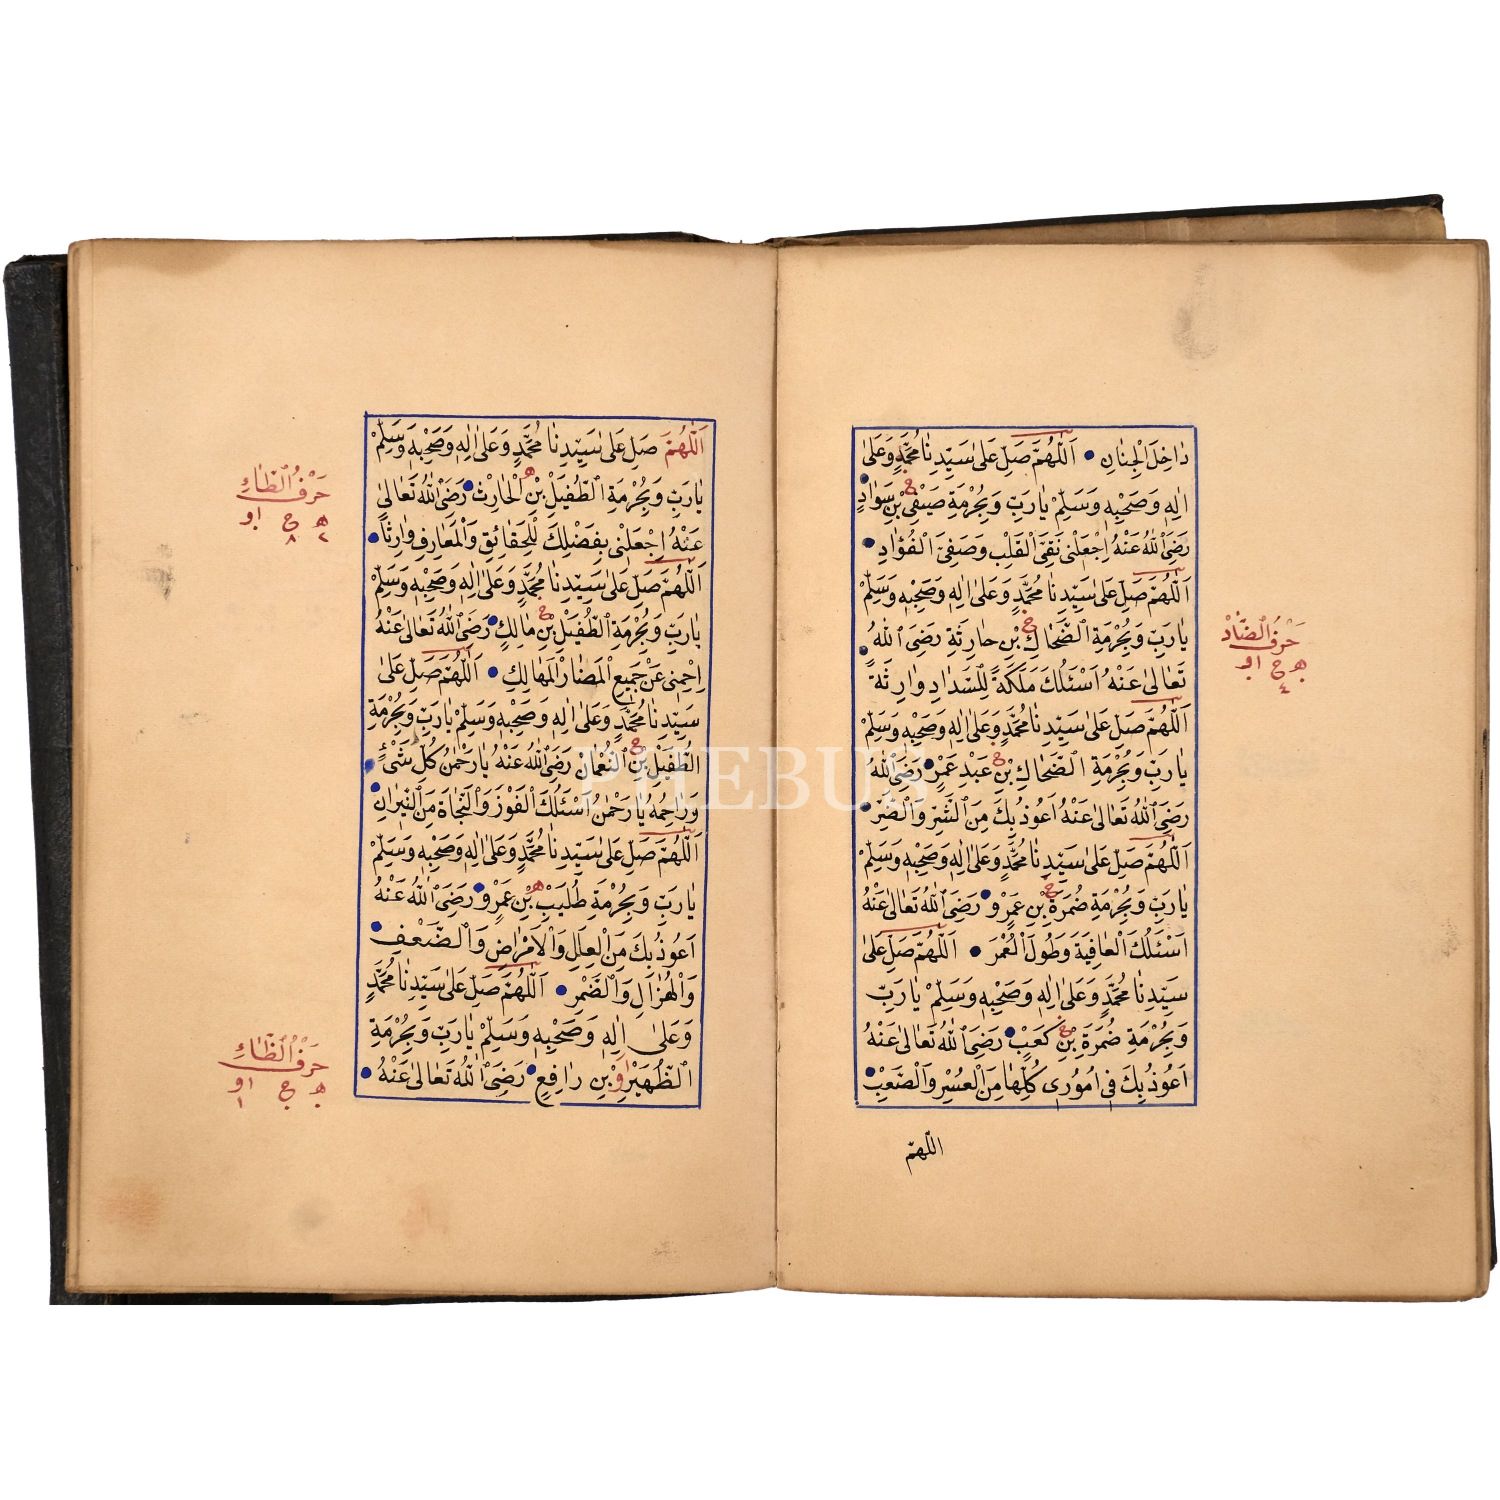 دٰاخِلَ الْجِنٰانِ • اَللّٰهُمَّ صَلِّ عَلىٰ سَيِّدِنٰا مُحَمَّدٍ وَعَلىٰ
اٰلِهٖ وَصَحْبِهٖ وَسَلِّمْ يٰارَبِّ وَبِحُرْمَةِ صَيْفِىِّ بْنِ سَوٰادٍ •
خ
رَضِىَ اللّٰهُ عَنْهُ اِجْعَلْنى نَقِىَّ الْقَلْبِ وَصَفِىَّ الْفُؤٰادِ •
اَللّٰهُمَّ صَلِّ عَلىٰ سَيِّدِنٰا مُحَمَّدٍ وَعَلىٰ اٰلِهٖ وَصَحْبِهٖ وَسَلِّمْ
يٰارَبِّ وَبِحُرْمَةِ الضَّحّٰاكِ بْنِ حٰارِثَةِ رَضِىَ اللّٰهُ •
خ
تَعٰالىٰ عَنْهُ اَسْئَلُكَ مَلَكَةً لِلسَّدٰادِ وٰارِثَةً
اَللّٰهُمَّ صَلِّ عَلىٰ سَيِّدِنٰا مُحَمَّدٍ وَعَلىٰ اٰلِهٖ وَصَحْبِهٖ وَسَلِّمْ
يٰارَبِّ وَبِحُرْمَةِ الضَّحّٰاكِ بْنِ عَبْدِ عَمْرٍ • رَضِىَ اللّٰهُ
خ
رَضِىَ اللّٰهُ تَعٰالىٰ عَنْهُ اَعُوذُ بِكَ مِنَ الشَّرِّ وَالضِّرِّ •
اَللّٰهُمَّ صَلِّ عَلىٰ سَيِّدِنٰا مُحَمَّدٍ وَعَلىٰ اٰلِهٖ وَصَحْبِهٖ وَسَلِّمْ
يٰارَبِّ وَبِحُرْمَةِ ضُمْرَةِ بْنِ عَمْرٍو • رَضِىَ اللّٰهُ تَعٰالىٰ عَنْهُ
خ
اَسْئَلُكَ الْعٰافِيَةَ وَطُولَ الْعُمْرِ • اَللّٰهُمَّ صَلِّ عَلىٰ
سَيِّدِنٰا مُحَمَّدٍ وَعَلىٰ اٰلِهٖ وَصَحْبِهٖ وَسَلِّمْ يٰارَبِّ
وَبِحُرْمَةِ ضُمْرَةِ بْنِ كَعْبٍ • رَضِىَ اللّٰهُ تَعٰالىٰ عَنْهُ
خ
اَعُوذُ بِكَ فى اُمُورى كُلِّهٰا مِنَ الْعُسْرِ وَالصَّعْبِ •
اللّهمّ
حَرْفُ الضّٰادْ
ﻫ خ او
٤
اَللّٰهُمَّ صَلِّ عَلىٰ سَيِّدِنٰا مُحَمَّدٍ وَعَلىٰ اٰلِهٖ وَصَحْبِهٖ وَسَلِّمْ
يٰارَبِّ وَبِحُرْمَةِ الطُّفَيْلِ بْنِ الْحٰارِثِ • رَضِىَ اللّٰهُ تَعٰالىٰ
ﻫ
عَنْهُ اِجْعَلْنى بِفَضْلِكَ لِلْحَقٰائِقِ وَالْمَعٰارِفِ وٰارِثًا •
اَللّٰهُمَّ صَلِّ عَلىٰ سَيِّدِنٰا مُحَمَّدٍ وَعَلىٰ اٰلِهٖ وَصَحْبِهٖ وَسَلِّمْ
يٰارَبِّ وَبِحُرْمَةِ الطُّفَيْلِ بْنِ مٰالِكٍ • رَضِىَ اللّٰهُ تَعٰالىٰ عَنْهُ
خ
اِحْمِنى عَنْ جَميعِ الْمَضٰارِّ الْمَهٰالِكِ • اَللّٰهُمَّ صَلِّ عَلىٰ
سَيِّدِنٰا مُحَمَّدٍ وَعَلىٰ اٰلِهٖ وَصَحْبِهٖ وَسَلِّمْ يٰارَبِّ وَبِحُرْمَةِ
الطُّفَيْلِ بْنِ النُّعْمٰانْ رَضِىَ اللّٰهُ عَنْهُ يٰارَحْمٰنَ كُلِّ شَىْءٍ •
خ
وَرٰاحِمُهُ يٰارَحْمٰنُ اَسْئَلُكَ الْفَوْزَ وَالنَّجٰاةَ مِنَ النّيرٰانِ •
اَللّٰهُمَّ صَلِّ عَلىٰ سَيِّدِنٰا مُحَمَّدٍ وَعَلىٰ اٰلِهٖ وَصَحْبِهٖ وَسَلِّمْ
يٰارَبِّ وَبِحُرْمَةِ طُلَيْبِ بْنِ عَمْرٍو • رَضِىَ اللّٰهُ عَنْهُ
ﻫ
اَعُوذُ بِكَ مِنَ الْعِلَلِ وَالْاَمْرٰاضِ وَالضَّعْفِ •
وَالْهُزٰالِ وَالضَّمْرِ • اَللّٰهُمَّ صَلِّ عَلىٰ سَيِّدِنٰا مُحَمَّدٍ
وَعَلىٰ اٰلِهٖ وَصَحْبِهٖ وَسَلِّمْ يٰارَبِّ وَبِحُرْمَةِ
الظُّهَيْرِ بْنِ رٰافِعٍ • رَضِىَ اللّٰهُ تَعٰالىٰ عَنْهُ •
او
حَرْفُ الطّٰاءِ
ﻫ خ او
٢ ٨
حَرْفُ الظّٰاءِ
ﻫ خ او
١
PHEBUS